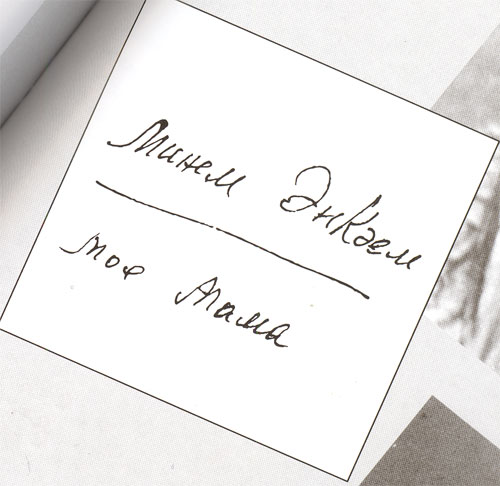 Минем Энкәем
моя мама